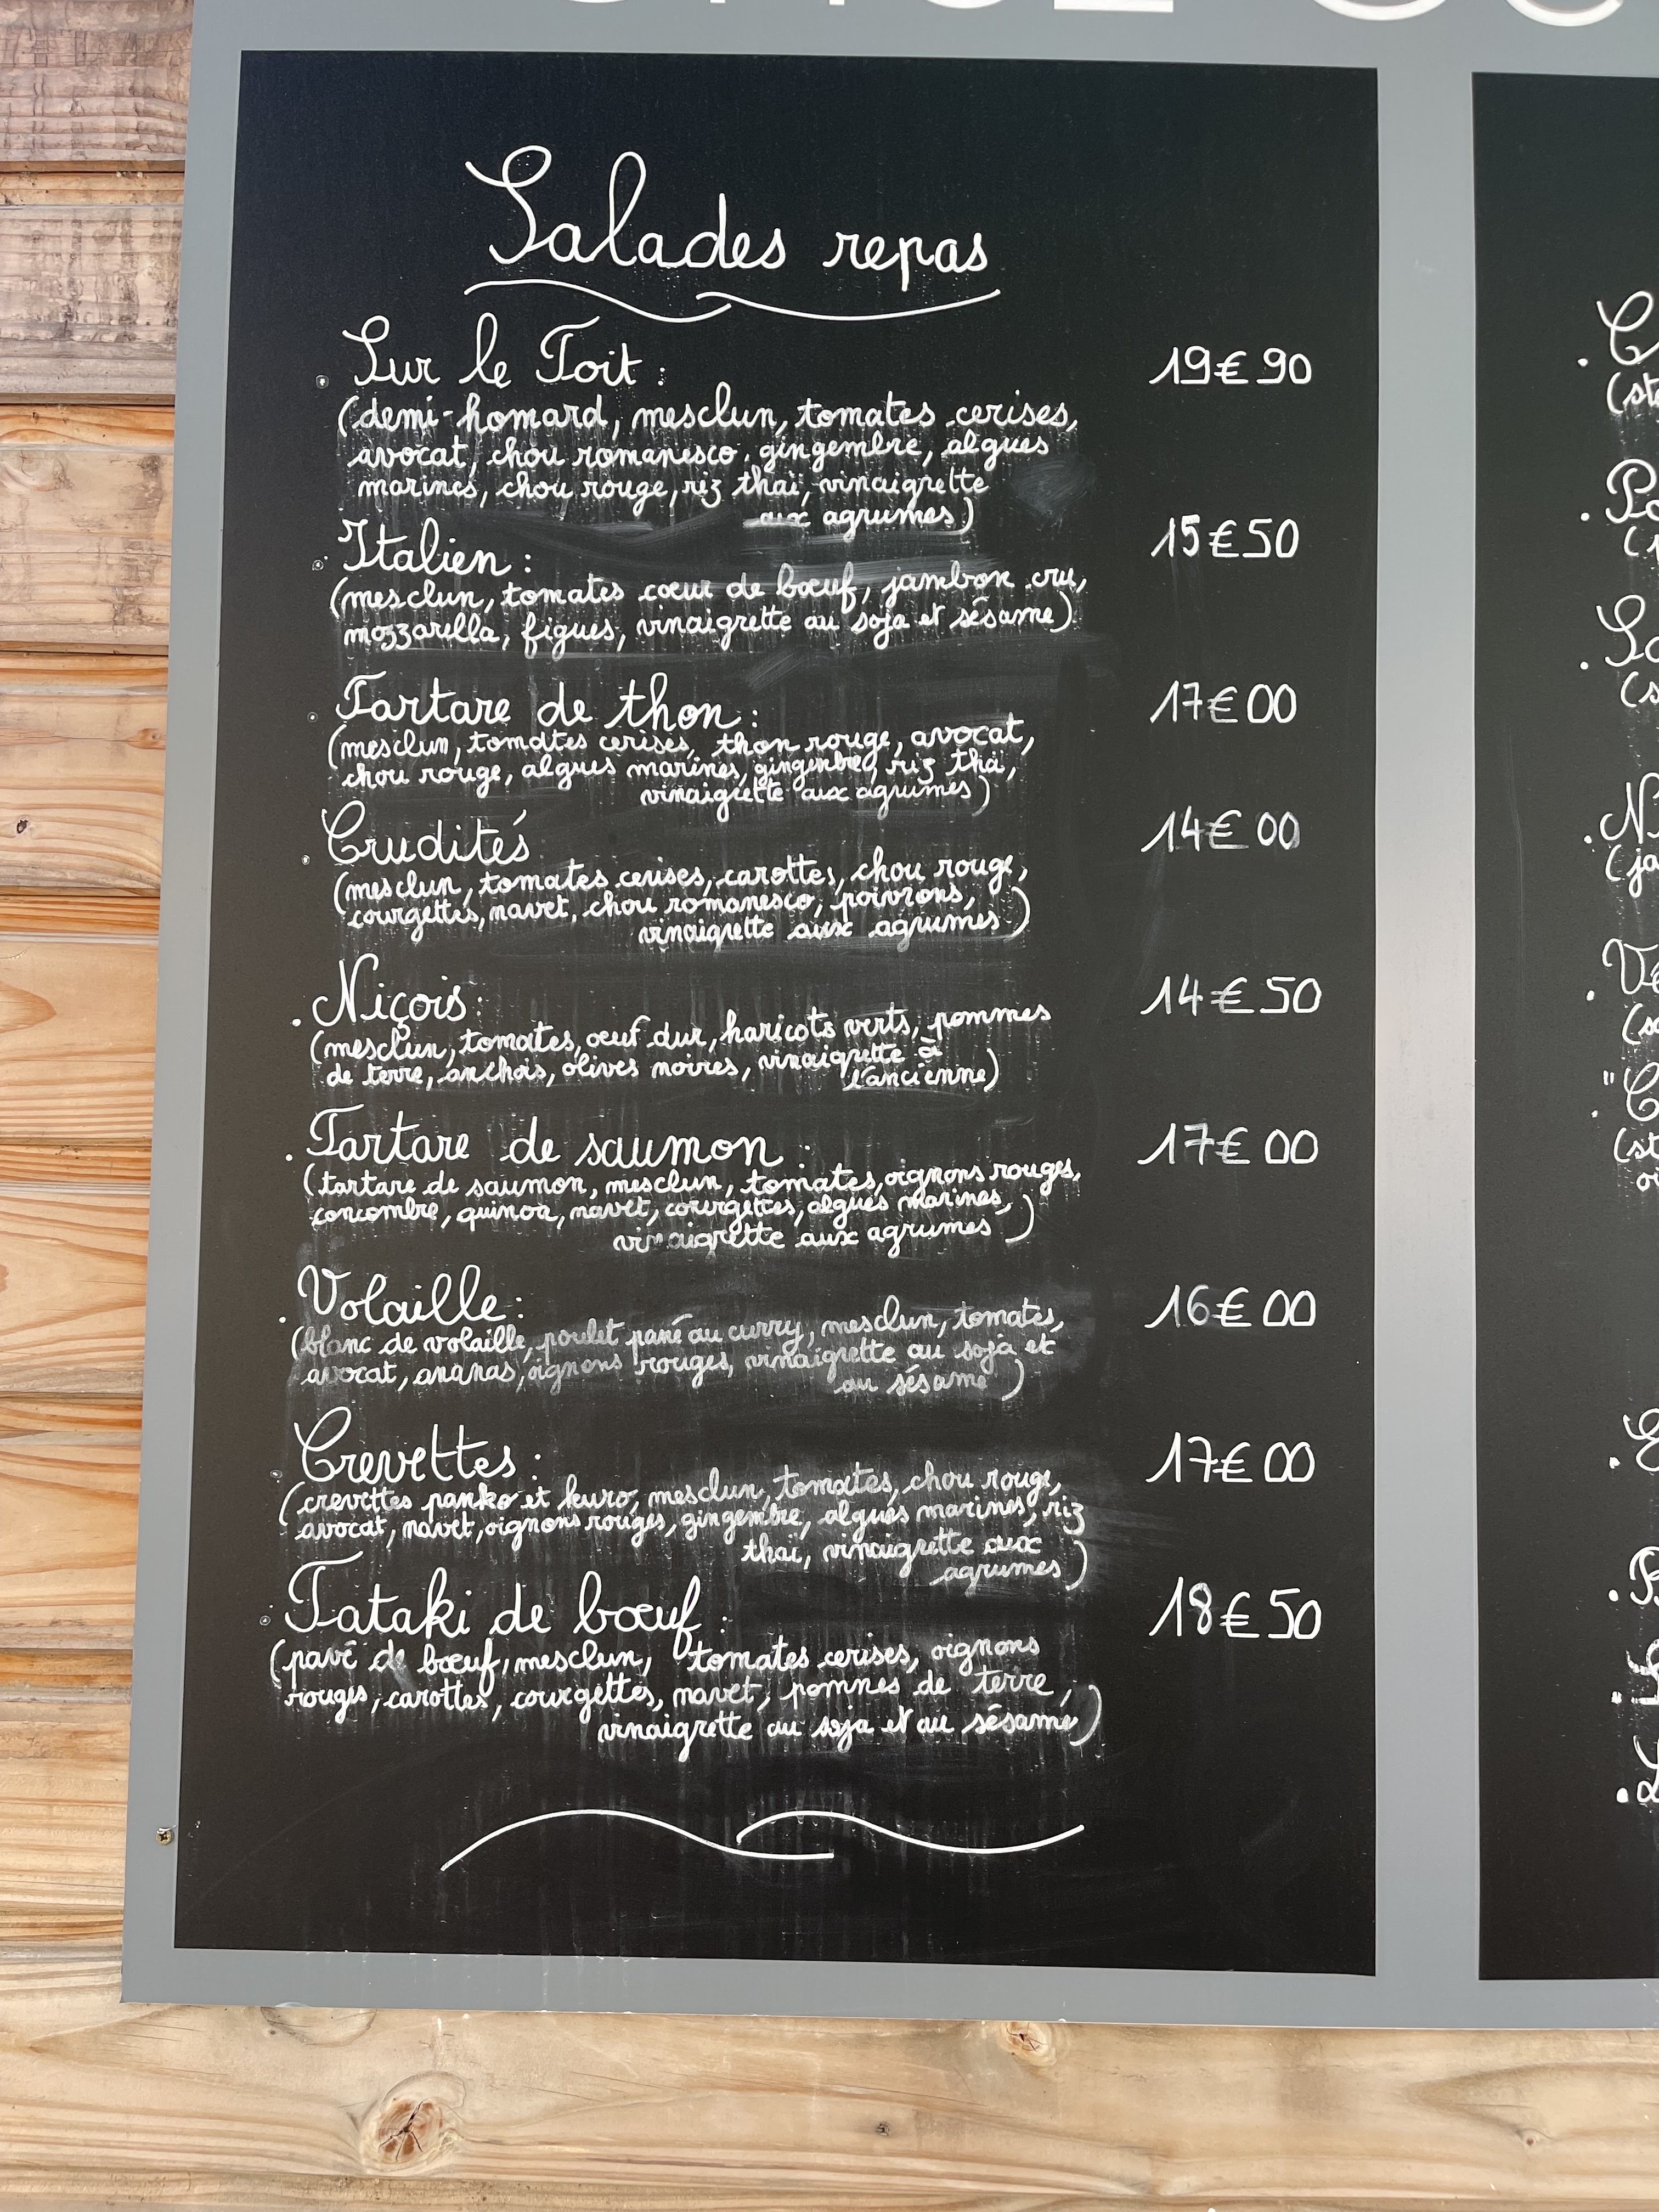 Salades repas
. Sur le Toit : 19€90
(demi-homard, mesclun, tomates cerises,
avocat, chou romanesco, gingembre, algues
marines, chou rouge, riz thaï, vinaigrette
aux agrumes)
. Italien : 15€50
(mesclun, tomates cœur de bœuf, jambon cru,
mozzarella, figues, vinaigrette au soja et sésame)
. Tartare de thon : 17€00
(mesclun, tomates cerises, thon rouge, avocat,
chou rouge, algues marines, gingembre, riz thaï,
vinaigrette aux agrumes)
. Crudités 14€00
(mesclun, tomates cerises, carottes, chou rouge,
courgettes, navet, chou romanesco, poivrons,
vinaigrette aux agrumes)
. Niçois : 14€50
(mesclun, tomates, œuf dur, haricots verts, pommes
de terre, anchois, olives noires, vinaigrette à
l'ancienne)
. Tartare de saumon : 17€00
(tartare de saumon, mesclun, tomates, oignons rouges,
concombre, quinoa, navet, courgettes, algues marines,
vinaigrette aux agrumes)
. Volaille : 16€00
(blanc de volaille, poulet pané au curry, mesclun, tomates,
avocat, ananas, oignons rouges, vinaigrette au soja et
au sésame)
. Crevettes : 17€00
(crevettes panko et kuro, mesclun, tomates, chou rouge,
avocat, navet, oignons rouges, gingembre, algues marines, riz
thaï, vinaigrette aux
agrumes)
. Tataki de bœuf : 18€50
(pavé de bœuf, mesclun, tomates cerises, oignons
rouges, carottes, courgettes, navet, pommes de terre,
vinaigrette au soja et au sésame)